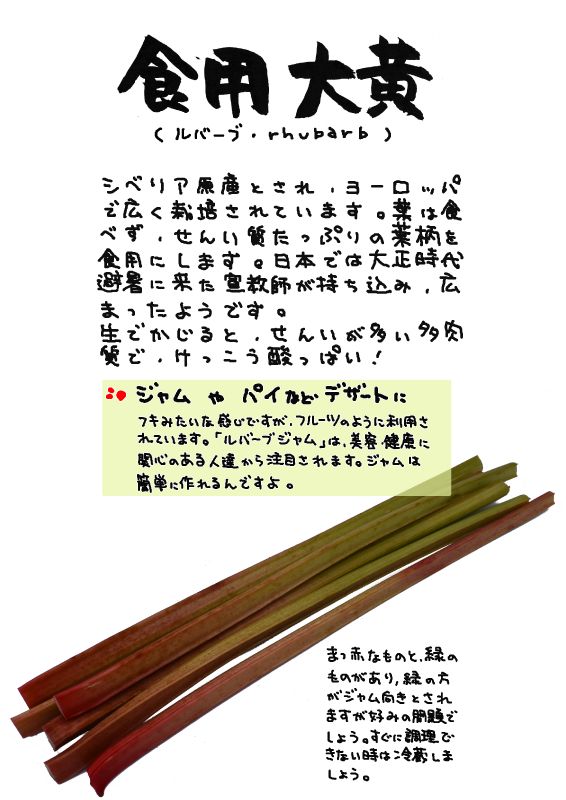 食用大黄
(ルバーブ・rhubarb)
シベリア原産とされ、ヨーロッパ
で広く栽培されています。葉は食
べず、せんい質たっぷりの葉柄を
食用にします。日本では大正時代
避暑に来た宣教師が持ち込み、広
まったようです。
生でかじると、せんいが多い多肉
質で、けっこう酸っぱい!
ジャム や パイなどデザートに
フキみたいな感じですが、フルーツのように利用さ
れています。「ルバーブジャム」は、美容・健康に
関心のある人達から注目されます。ジャムは
簡単に作れるんですよ。
まっ赤なものと、緑の
ものがあり、緑の方
がジャム向きとされ
ますが好みの問題で
しょう。すぐに調理で
きない時は冷蔵しま
しょう。